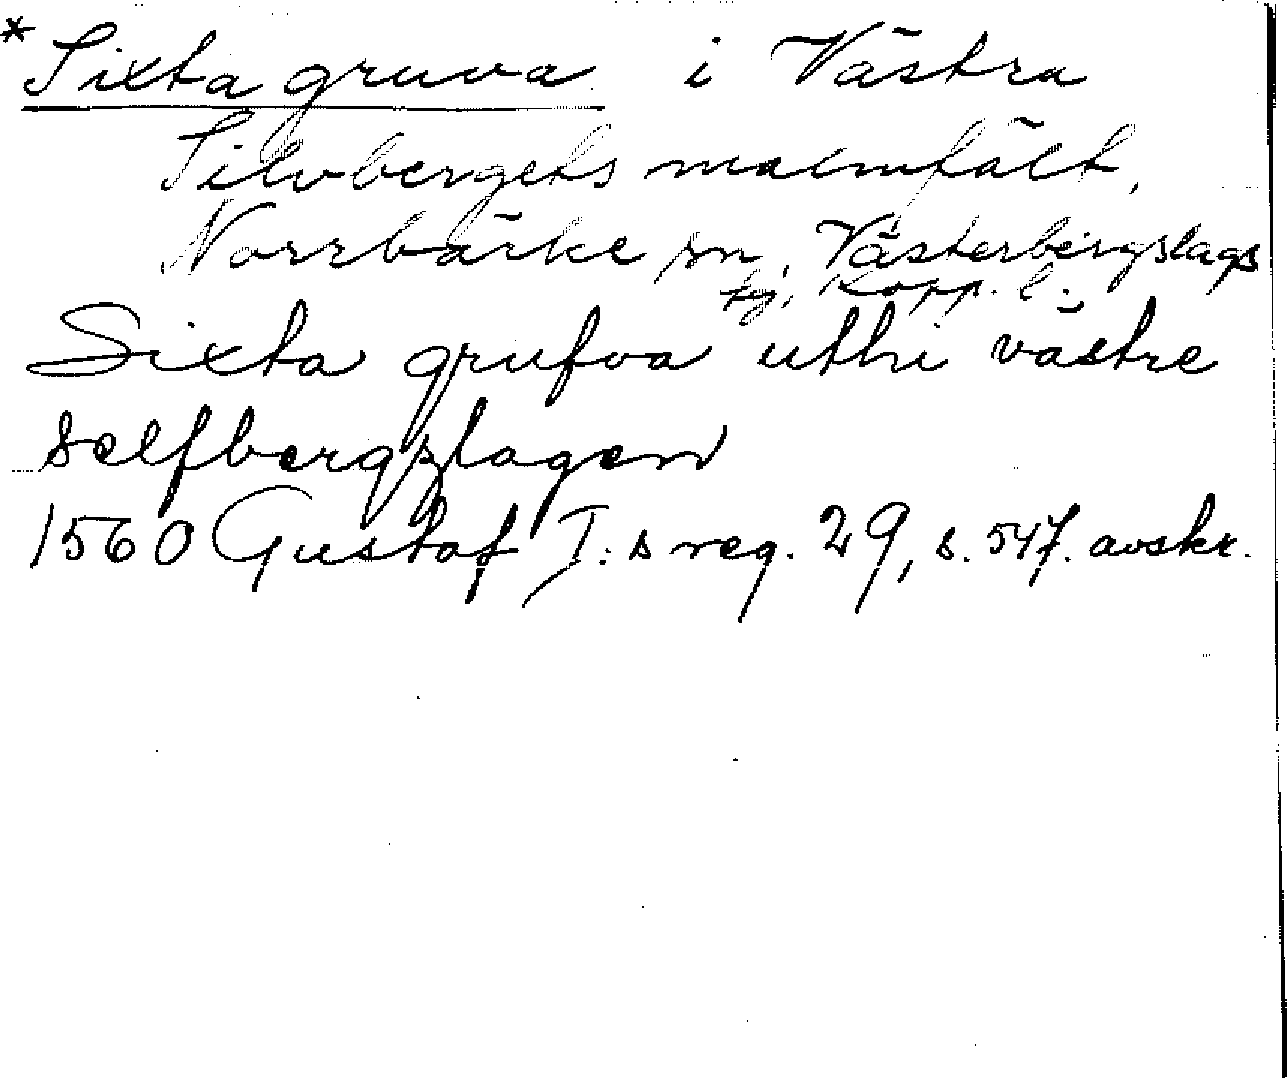 * Sixta gruva i Västra
Silvbergets malmfält,
Norrbärke sn, Västerbergslags
tg, Kopp. l.
Sixta grufva uthi västre
selfbergzlagen
1560 Gustaf I:s reg. 29, s. 547. avskr.